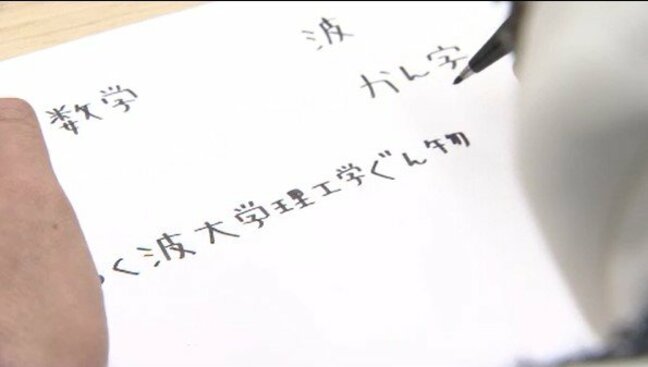 数学
波
かん字
く波大学理工学ぐん物